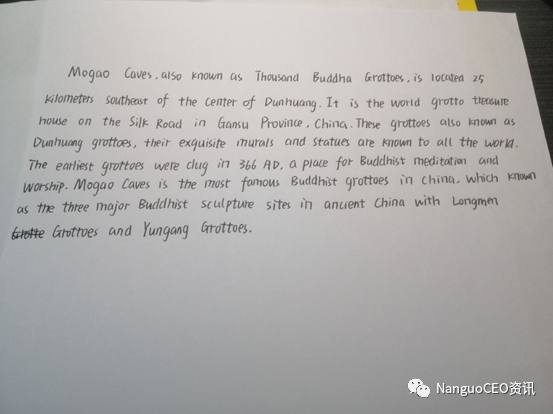 Mogao Caves, also known as Thousand Buddha Grottoes, is located 25
kilometers southeast of the center of Dunhuang. It is the world grotto treasure
house on the Silk Road in Gansu Province, China. These grottoes also known as
Dunhuang grottoes, their exquisite murals and statues are known to all the world.
The earliest grottoes were dug in 366 AD, a place for Buddhist meditation and
worship. Mogao Caves is the most famous Buddhist grottoes in China, which known
as the three major Buddhist sculpture sites in ancient China with Longmen
Grotte Grottoes and Yungang Grottoes.
NanguoCEO资讯